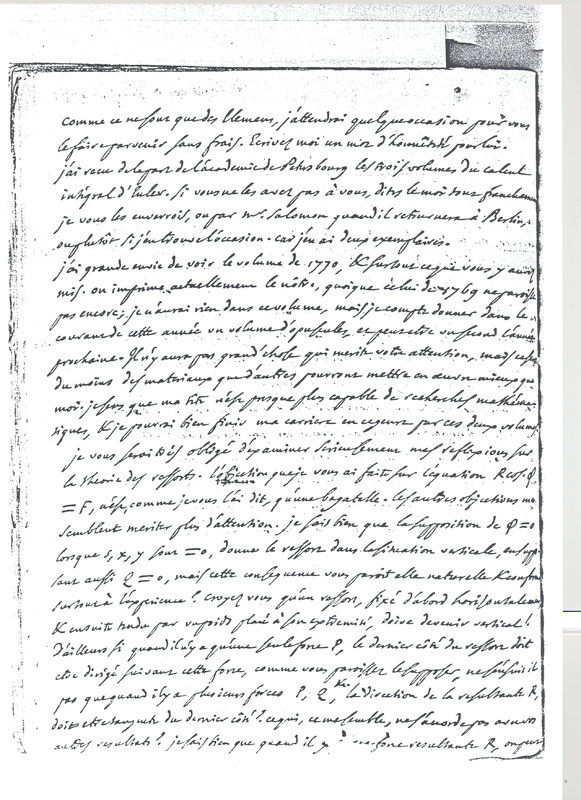 comme ce ne sont que des Elemens, j'attendrai quelque occasion pour vous
le faire parvenir sans frais. Ecrivez moi un mot d'honnêteté pour lui.
j'ai recu de la part de l'academie de Petersbourg les trois volumes du calcul
intégral d'Euler. Si vous ne les avez pas à vous, dites le moi tout franchement
je vous les enverrois, ou par Mr. Salomon quand il retournera à Berlin,
ou plutôt si j'en trouve l'occasion. car j'en ai deux exemplaires.
j'ai grande envie de voir le volume de 1770, & surtout ce que vous y aurez
mis. on imprime actuellement le nôtre, quoique celui de 1769 ne paroisse
pas encore; je n'aurai rien dans ce volume, mais je compte donner dans le
courant de cette année un volume d'opuscules, et peut etre un second l'année
prochaine. Il n'y aura pas grand'chose qui merite votre attention, mais ce sera
du moins des materiaux que d'autres pourront mettre en œuvre mieux que
moi. je sens que ma tête n'est presque plus capable de recherches mathéma-
tiques, & je pourrai bien finir ma carriere en ce genre par ces deux volumes.
je vous serai très obligé d'examiner serieusement mes reflexions sur
la theorie des ressorts. l'objection que je vous ai faite sur l'équation R cos. φ
= F, n'est, comme je vous l'ai dit, qu'une bagatelle. les autres objections me
semblent meriter plus d'attention. je sais bien que la supposition de φ=0
lorsque s, x, y sont =0, donne le ressort dans la situation verticale, en suppo-
sant aussi Q=0, mais cette consequence vous paroît elle naturelle & conforme
surtout à l'experience? croyez vous qu'un ressort, fixé d'abord horisontalement
& ensuite tendu par un poids placé à son extremité, doive devenir vertical?
D'ailleurs si quand il n'y a qu'une seule force P, le dernier côté du ressort doit
etre dirigé suivant cette force, comme vous paroissez le supposer, ne s'ensuit il
pas que quand il y a plusieurs forces P, Q, &c. la direction de la resultante R,
doit etre tangente du dernier côté? ce qui, ce me semble, ne s'accorde pas avec vos
autres resultats? je sais bien que quand il y a une force resultante R, on peut